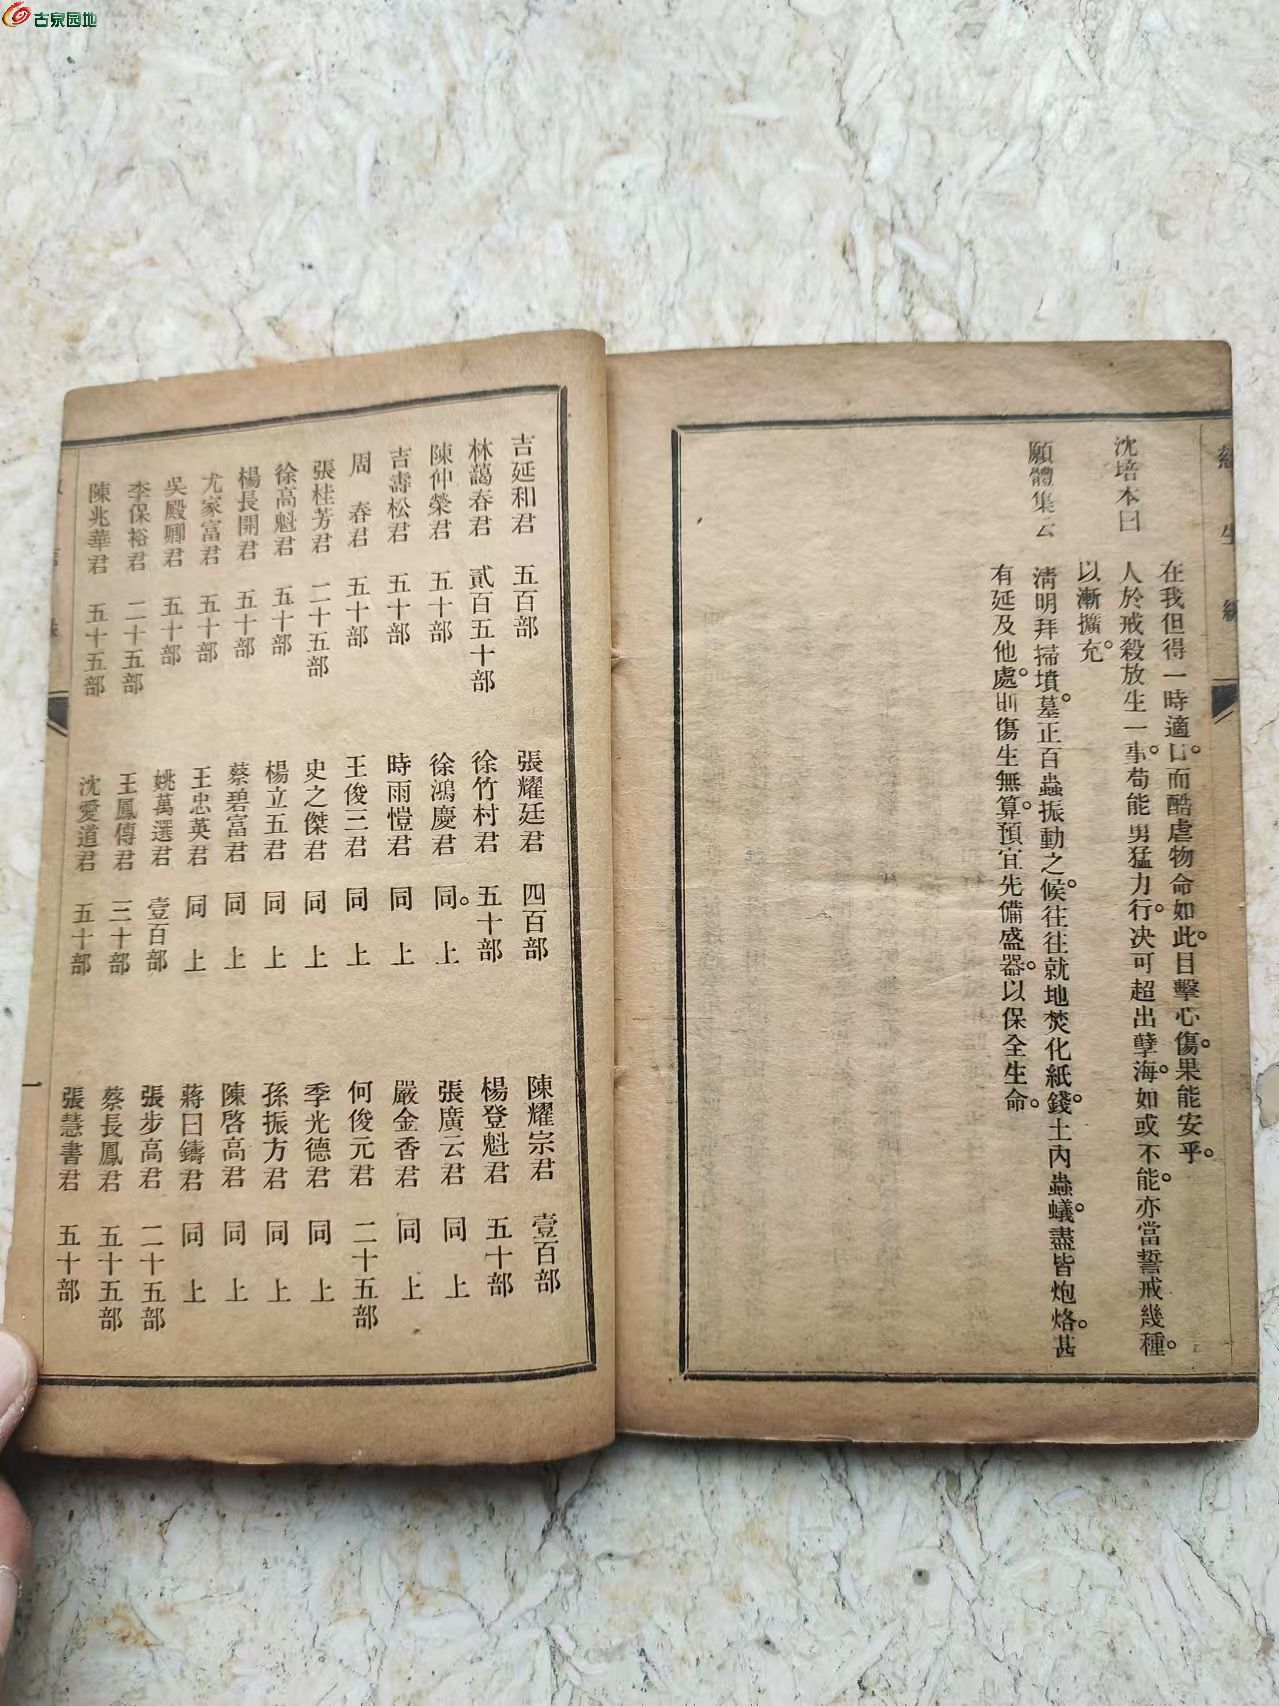 古泉园地
生
在我但得一時適口。而酷虐物命如此。目擊心傷。果能安乎。
沈培本曰
人於戒殺放生一事。苟能勇猛力行。决可超出孽海。如或不能。亦當誓戒幾種。
以漸擴充。
願體集云
淸明拜掃墳墓。正百蟲振動之候。往往就地焚化紙錢。土內蟲蟻。盡皆炮烙。甚
有延及他處。則傷生無算。預宜先備盛器。以保全生命。
吉延和君 五百部 張耀廷君 四百部 陳耀宗君 壹百部
林藹春君 貳百五十部 徐竹村君 五十部 楊登魁君 五十部
陳仲榮君 五十部 徐鴻慶君 同。上 張廣云君 同上
吉壽松君 五十部 時雨愷君 同上 嚴金香君 同上
周春君 五十部 王俊三君 同上 何俊元君 二十五部
張桂芳君 二十五部 史之傑君 同上 季光德君 同上
徐高魁君 五十部 楊立五君 同上 孫振方君 同上
楊長開君 五十部 蔡碧富君 同上 陳啓高君 同上
尤家富君 五十部 王忠英君 同上 蔣曰鑄君 同上
吳殿卿君 五十部 姚萬選君 壹百部 張步高君 二十五部
李保裕君 二十五部 王鳳傳君 三十部 蔡長鳳君 五十五部
陳兆華君 五十五部 沈愛道君 五十部 張慧書君 五十部
一